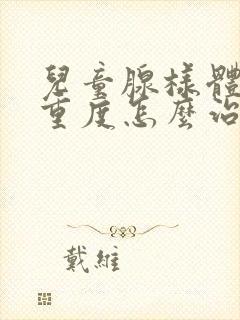 兒童腺樣體
重度怎麼治
戴維